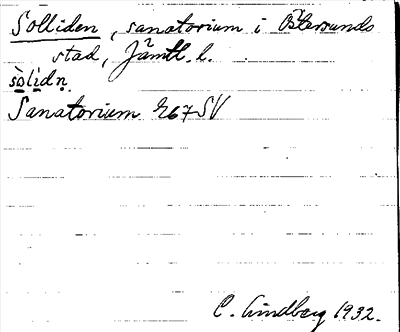 Solliden, sanatorium i Östersunds
stad, Jämtl. l.
sòlìdṇ
Sanatorium 267 SV
C. Lindberg 1932.